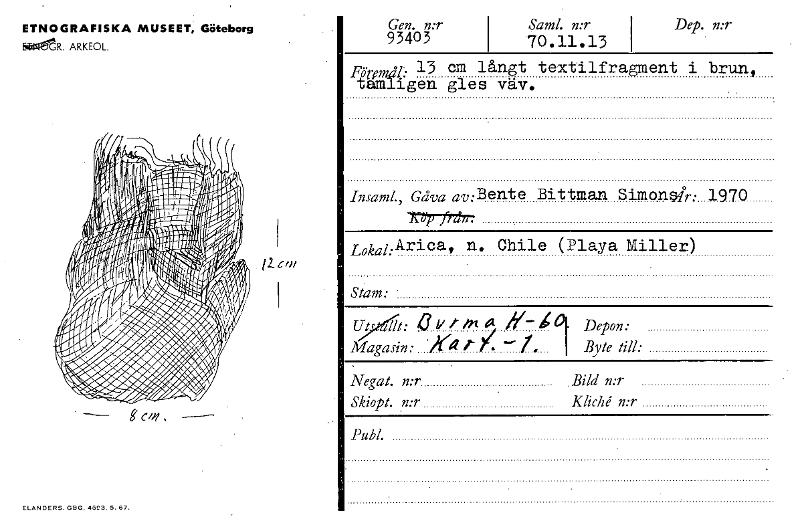 ETNOGRAFISKA MUSEET, Göteborg
ETNOGR. ARKEOL.
12 cm
8 cm.
ELANDERS. GBG. 4693. 5. 67.
Gen. n:r Saml. n:r Dep. n:r
93403 70.11.13
Föremål: 13 cm långt textilfragment i brun,
tämligen gles väv.
Insaml., Gåva av: Bente Bittman Simons År: 1970
Köp från:
Lokal: Arica, n. Chile (Playa Miller)
Stam:
Utställt: Burma H-60 Depon:
Magasin: Kart.-1. Byte till:
Negat. n:r Bild n:r
Skiopt. n:r Kliché n:r
Publ.